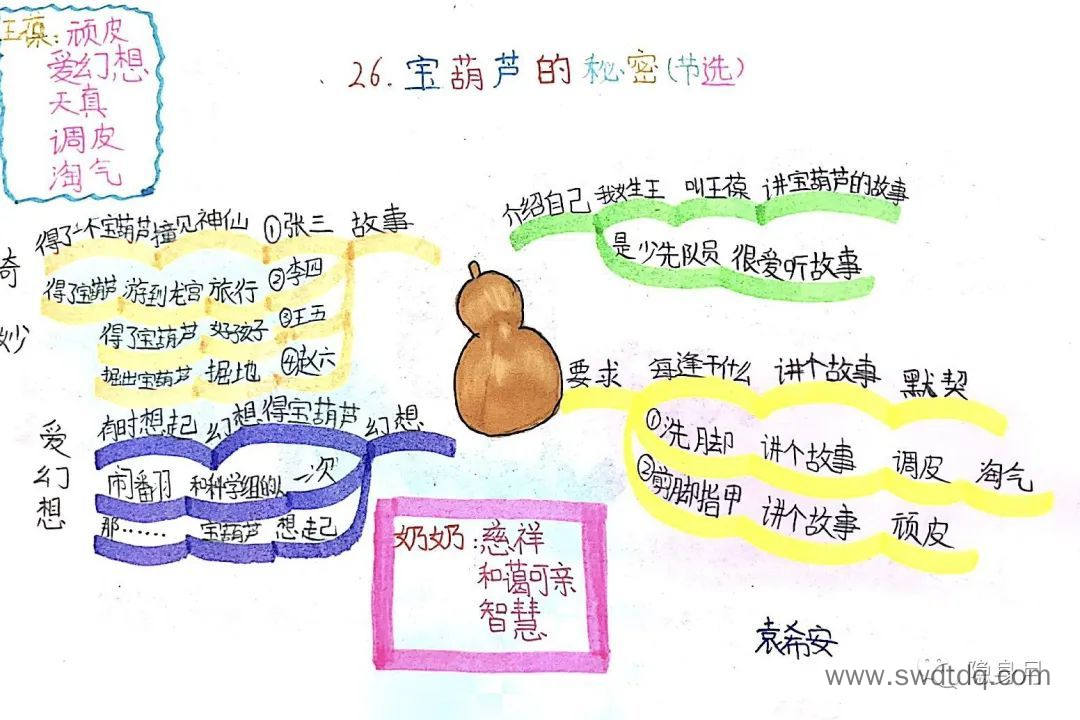 26.宝葫芦的秘密(节选)
王葆:顽皮
爱幻想
天真
调皮
淘气
介绍自己 我姓王 叫王葆 讲宝葫芦的故事
是少先队员 很爱听故事
奇妙
得了一个宝葫芦 撞见神仙 ①张三 故事
得了宝葫芦 游到龙宫 旅行 ②李四
得了宝葫芦 好孩子 ③王五
掘出宝葫芦 掘地 ④赵六
要求 每逢干什么 讲个故事 默契
①洗脚 讲个故事 调皮 淘气
②剪脚指甲 讲个故事 顽皮
爱幻想
有时想起 幻想得宝葫芦 幻想
闹翻 和科学组的人 一次
那…… 宝葫芦 想起
奶奶:慈祥
和蔼可亲
智慧
袁希安
www.swdtdq.com